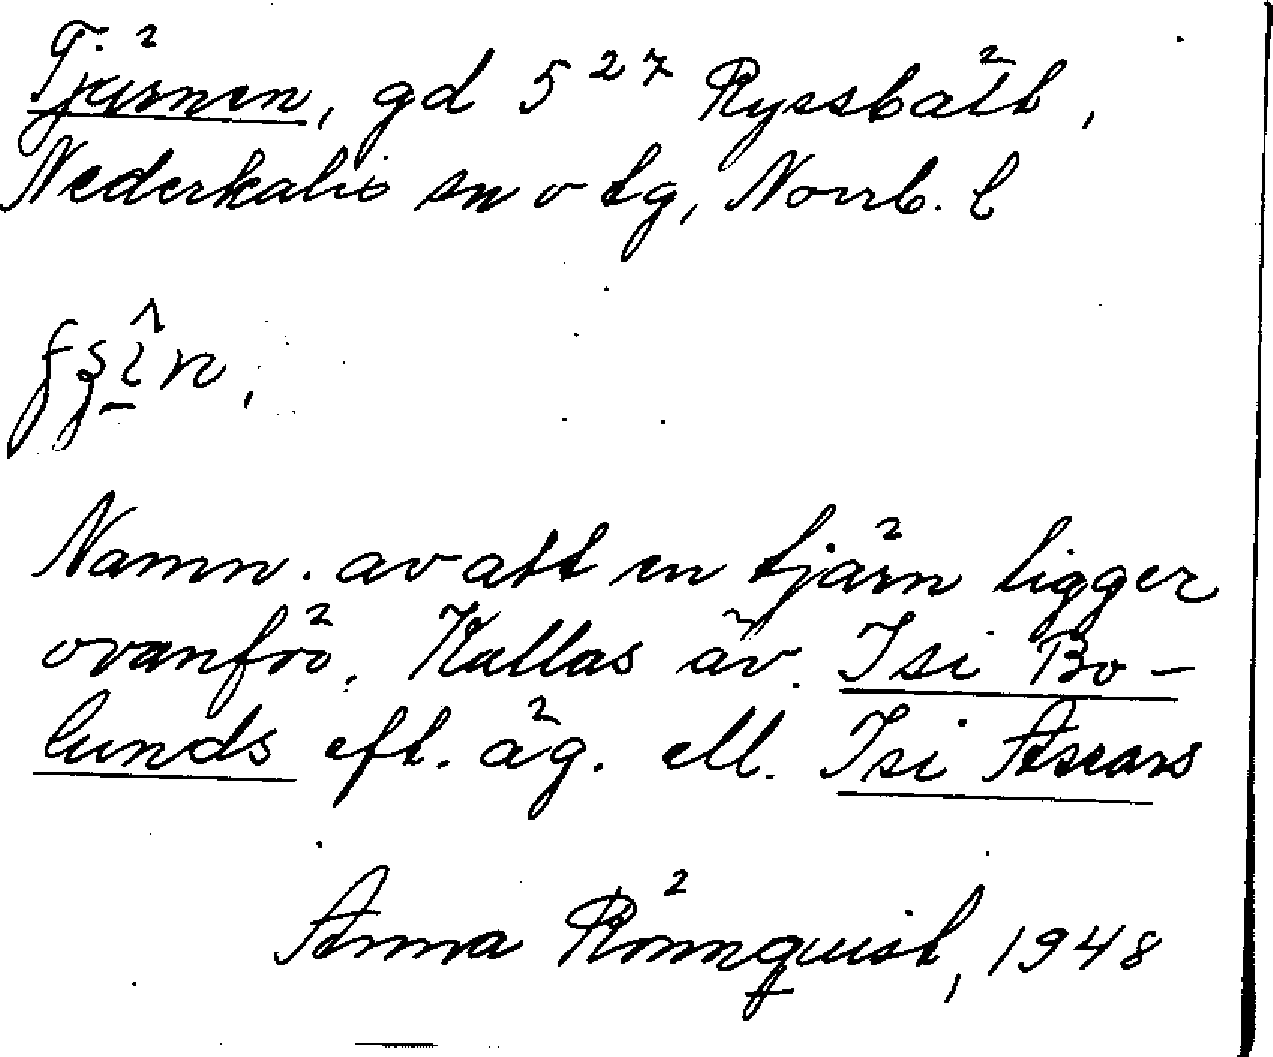 Tjärnen, gd 5²⁷ Ryssbält,
Nederkalix sn o tg, Norrb. l
Namn. av att en tjärn ligger
ovanför. Kallas äv. Isi Bo-
lunds eft. äg. ell. Isi Ascars
Anna Rönnquist, 1948